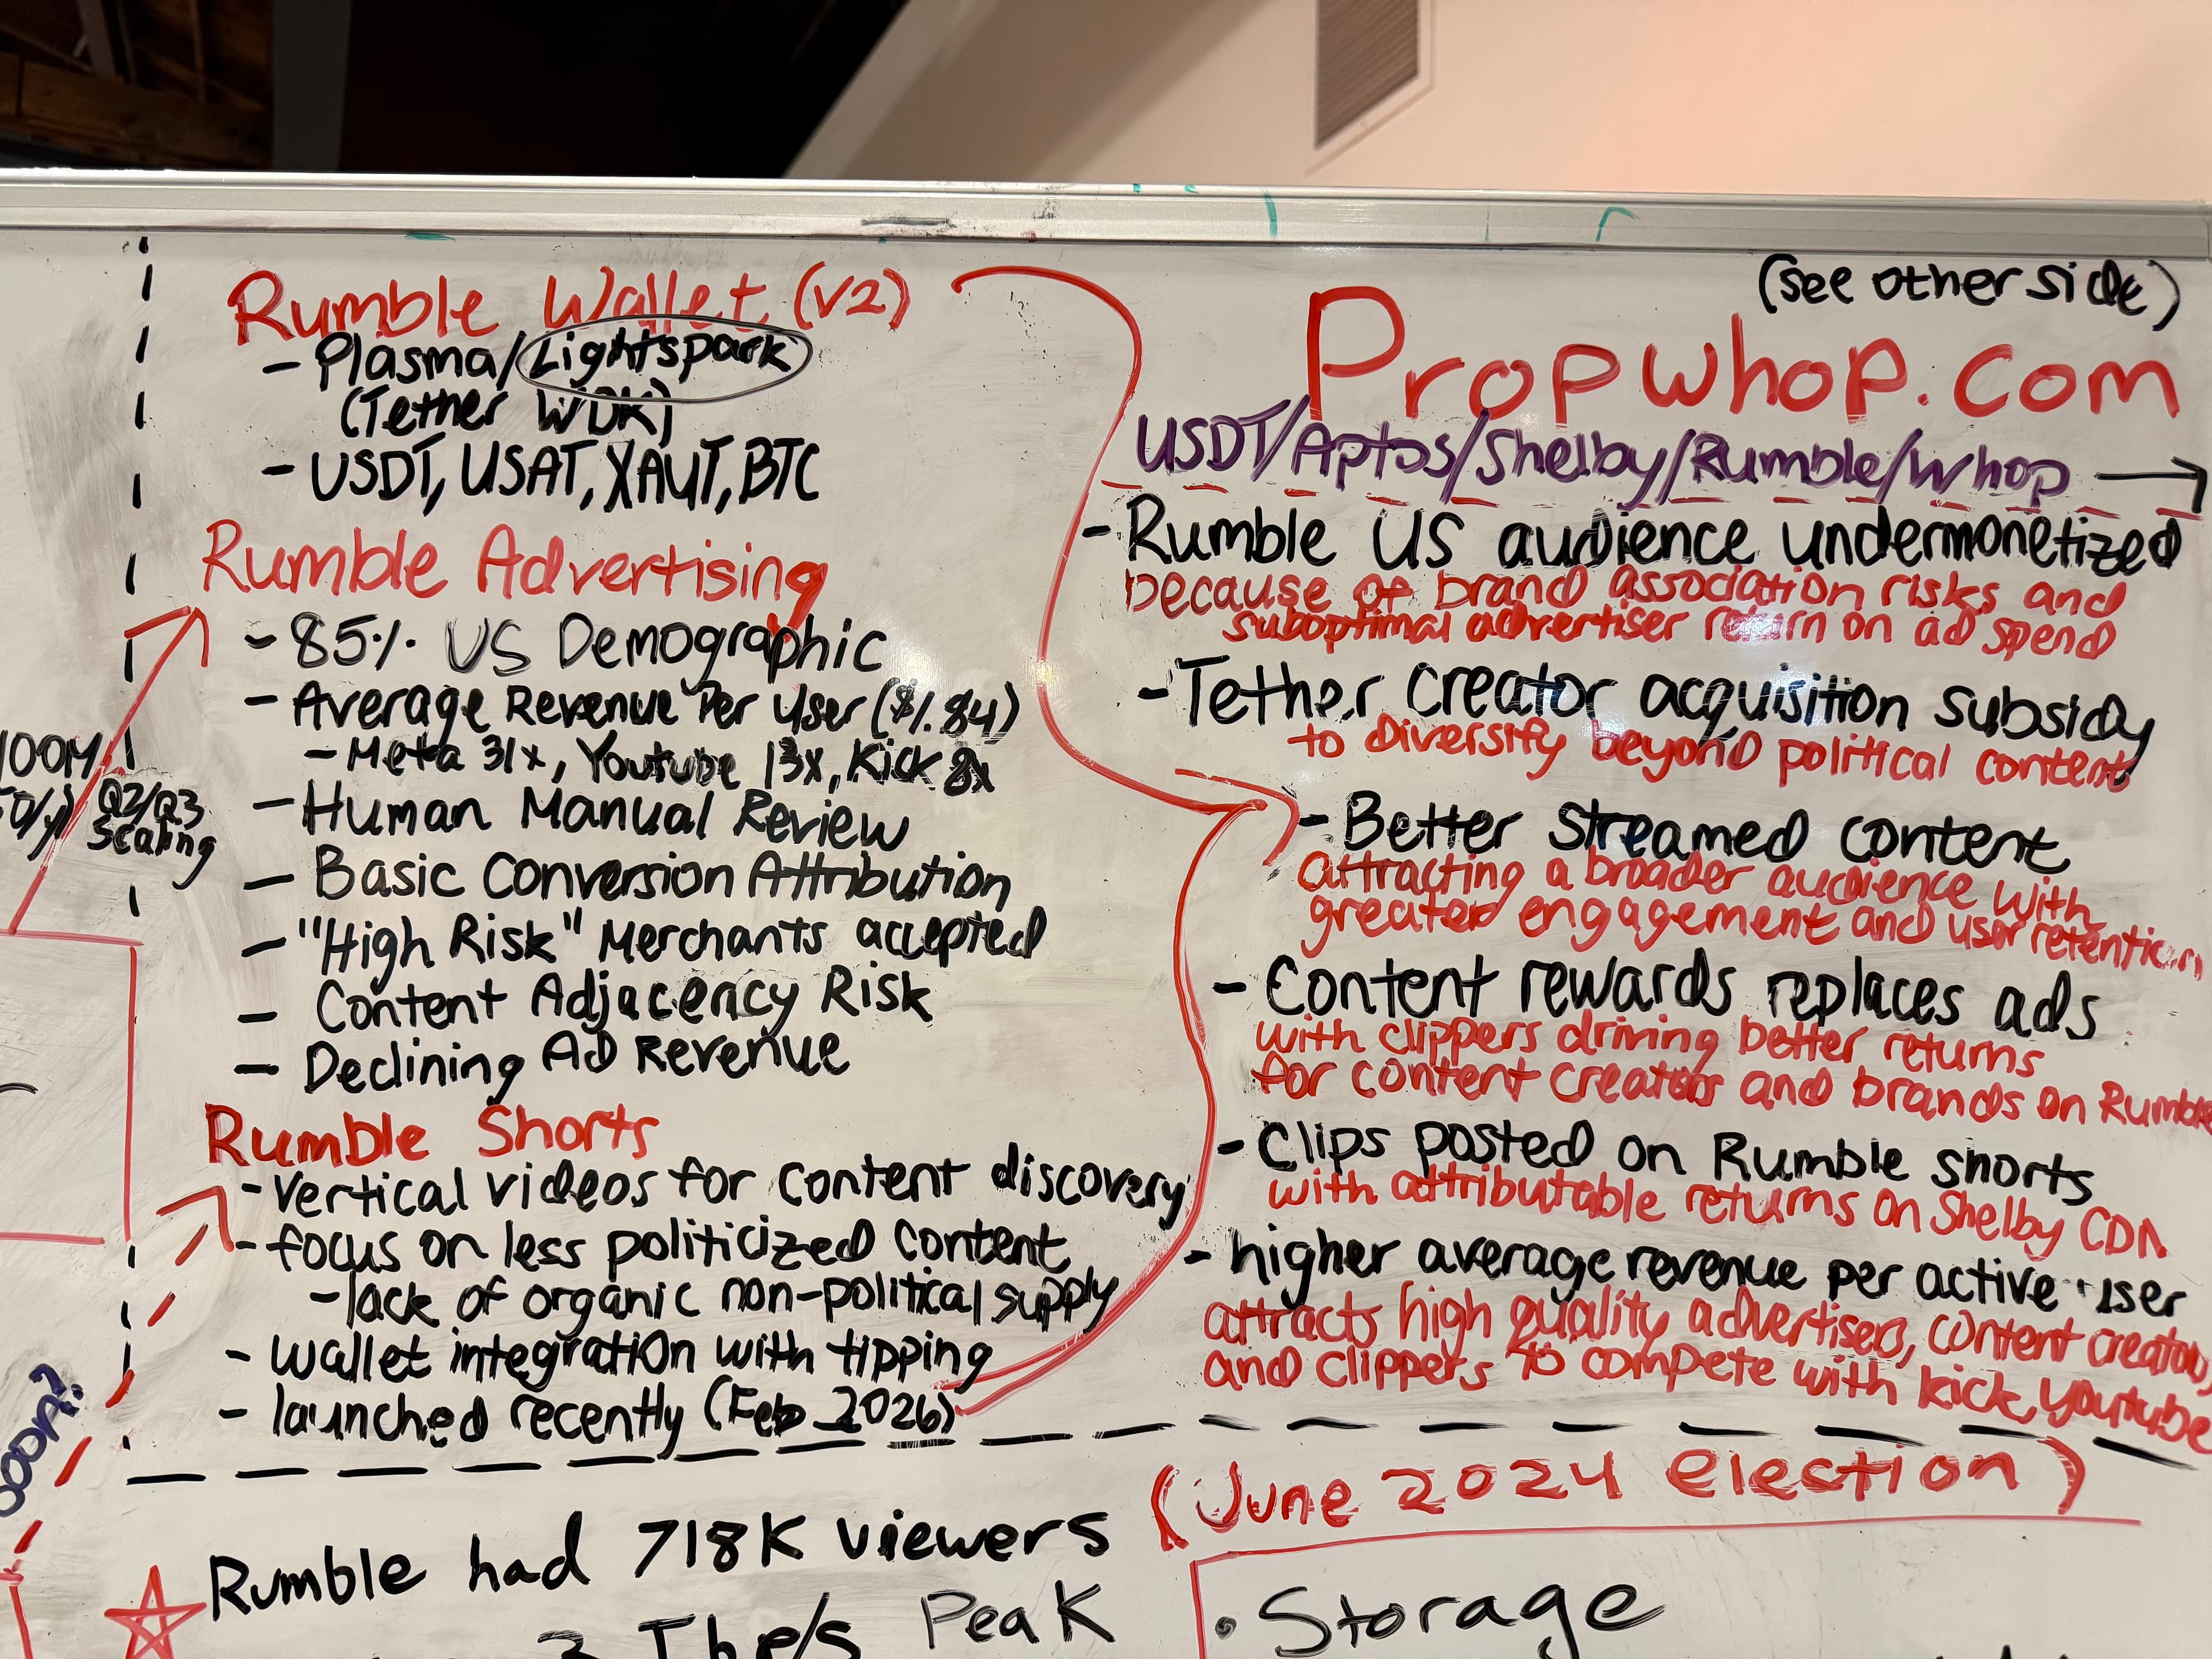 Rumble Wallet (v2)
- Plasma/Lightspark
(Tether WDK)
- USDT, USAT, XAUT, BTC
Rumble Advertising
- 85% US Demographic
- Average Revenue Per User ($1.84)
- Meta 31x, Youtube 13x, Kick 8x
- Human Manual Review
- Basic Conversion Attribution
- "High Risk" Merchants accepted
- Content Adjacency Risk
- Declining Ad Revenue
Rumble Shorts
- vertical videos for content discovery
- focus on less politicized content
- lack of organic non-political supply
- wallet integration with tipping
- launched recently (Feb 2026)
100M
Q2/Q3
Scaling
(see other side)
Propwhop.com
USDT/Aptos/Shelby/Rumble/Whop
- Rumble US audience undermonetized
because of brand association risks and
suboptimal advertiser return on ad spend
- Tether creator acquisition subsidy
to diversify beyond political content
- Better streamed content
attracting a broader audience with
greater engagement and user retention
- Content rewards replaces ads
with clippers driving better returns
for content creators and brands on Rumble
- Clips posted on Rumble shorts
with attributable returns on Shelby CDN
- higher average revenue per active user
attracts high quality advertisers, content creators,
and clippers to compete with kick, youtube
(June 2024 election)
Rumble had 718K viewers
Peak
• Storage